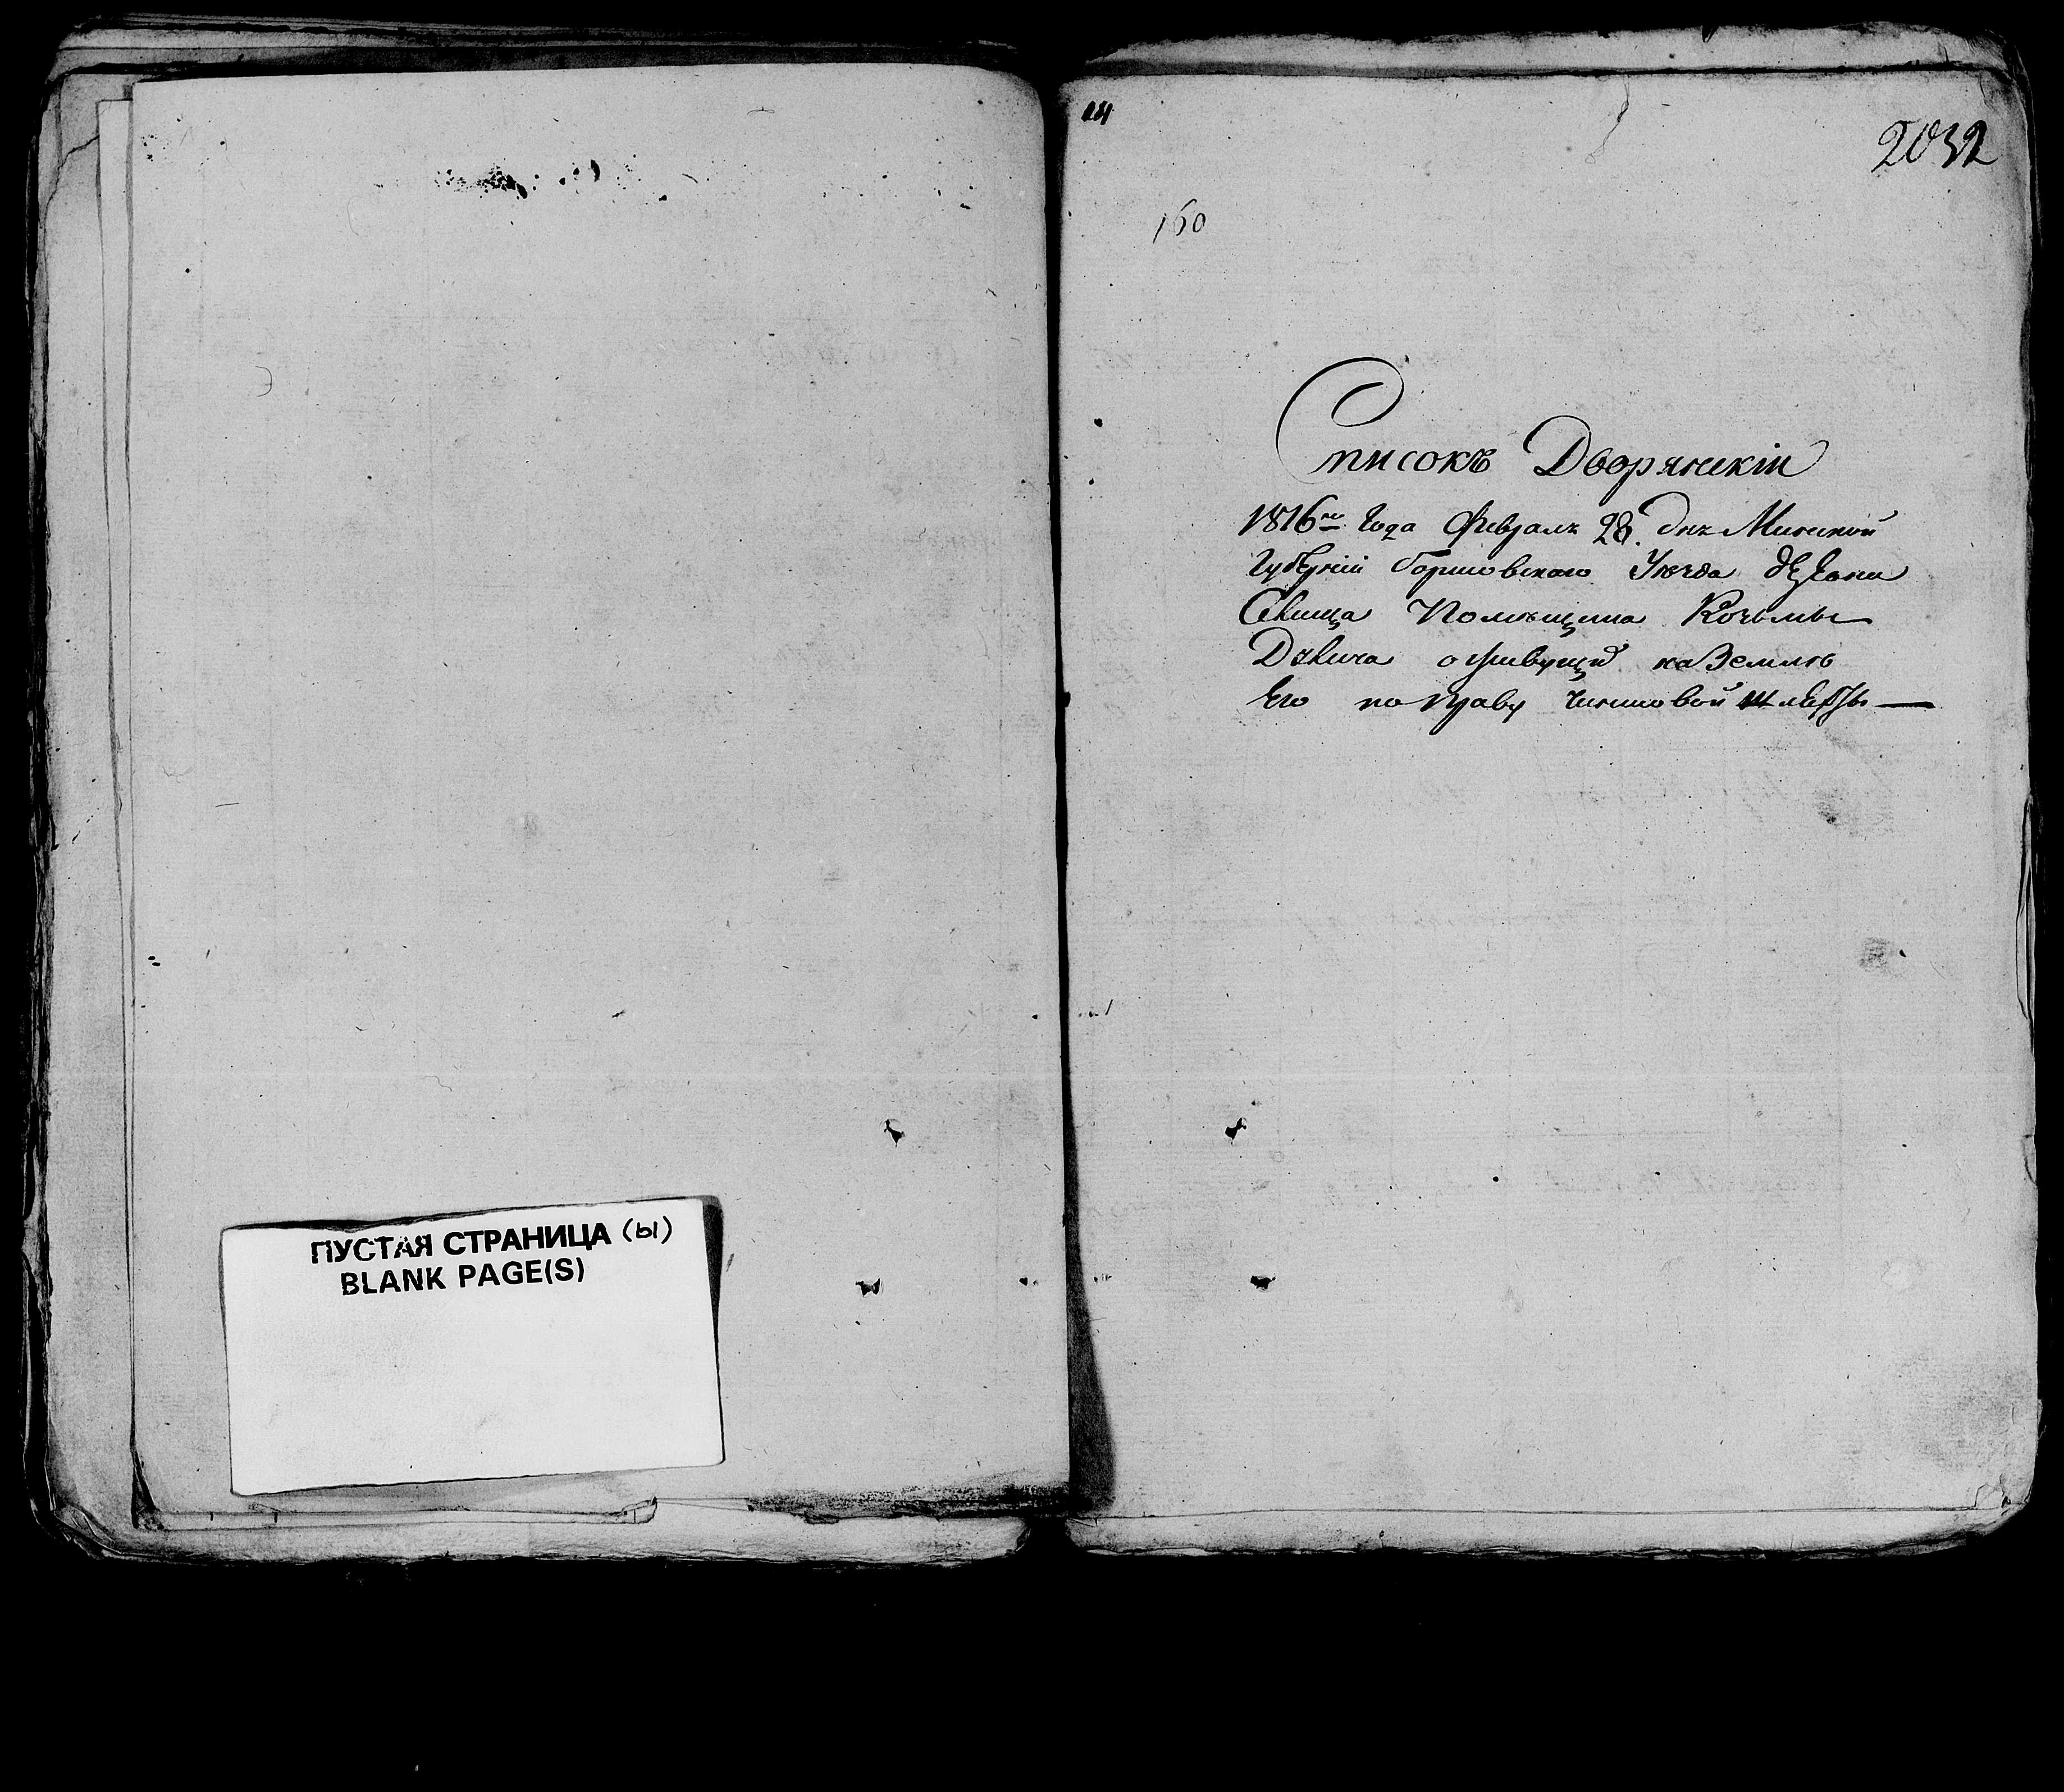 ПУСТАЯ СТРАНИЦА (ы)
BLANK PAGE(S)
2032
160
Списокъ Дворянскiи
1816го Года Февраля 28. дня Минской
Губернiи Борисовского Уезда
Помѣщика Козьмы
на Землѣ
Его по праву Чиншовой шляхты